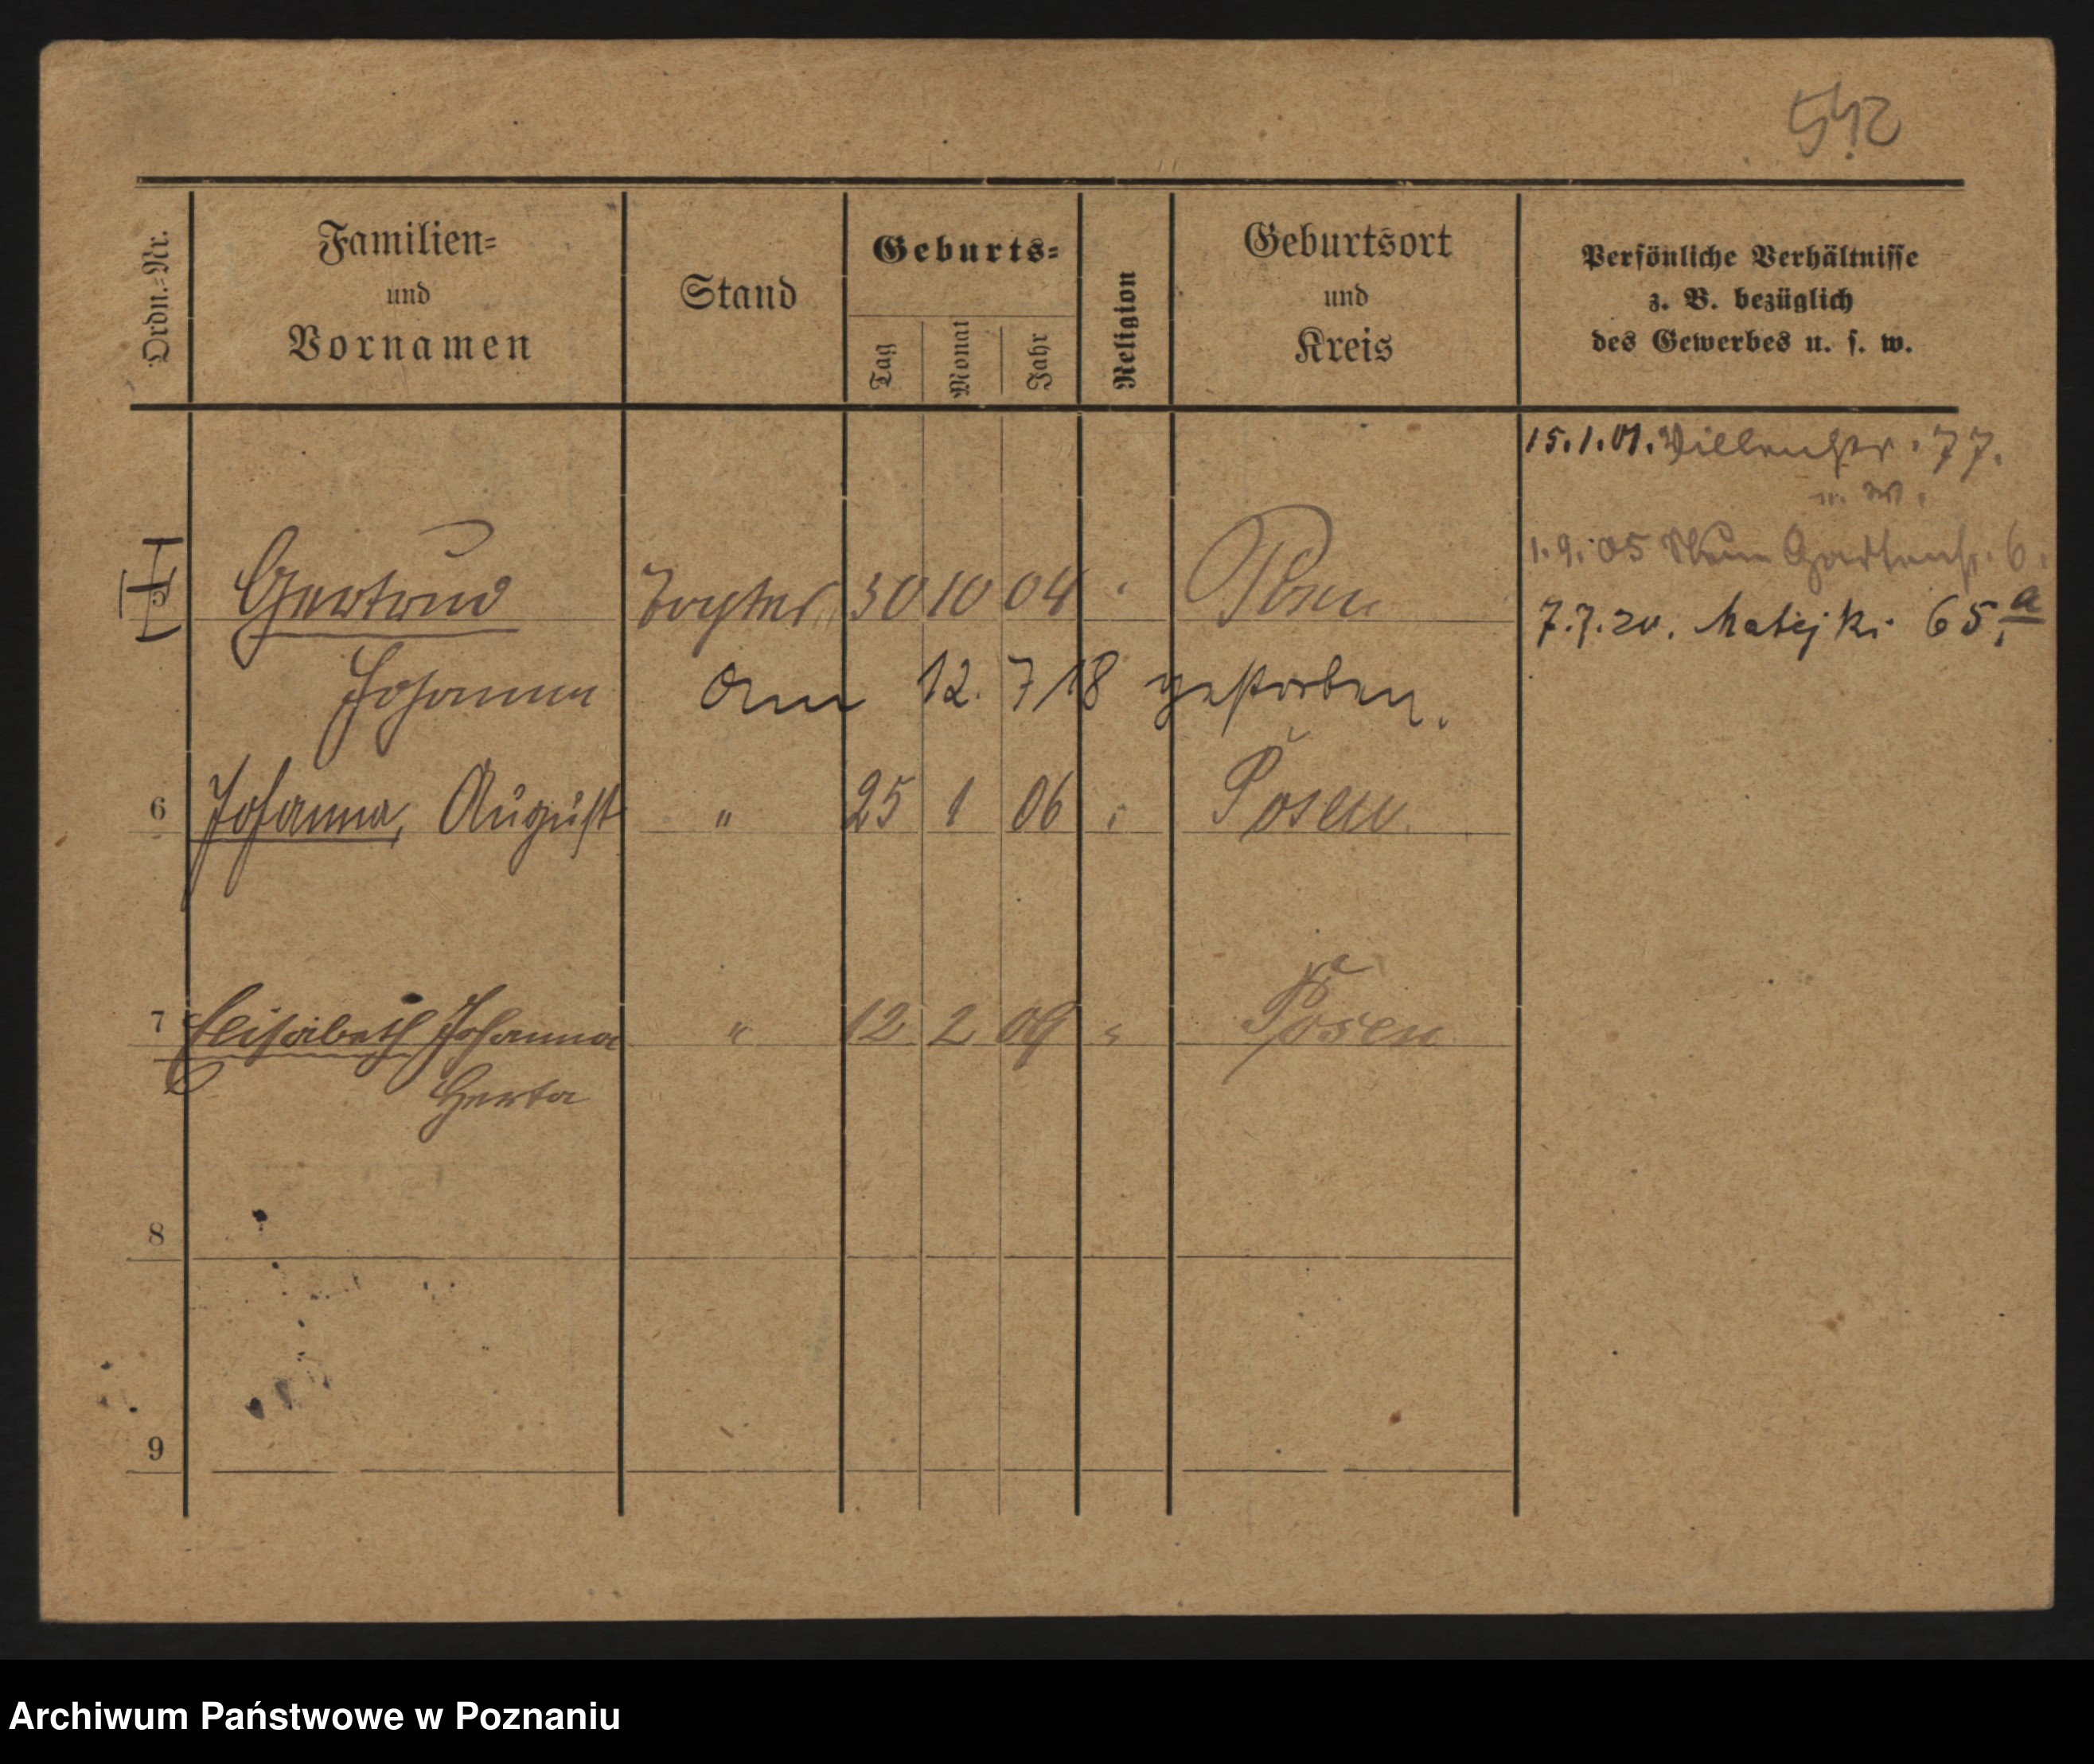 542
Ordn.-Nr.
Familien-
und
Vornamen
Stand
Geburts-
Tag
Monat
Jahr
Religion
Geburtsort
und
Kreis
Persönliche Verhältnisse
z. B. bezüglich
des Gewerbes u. s. w.
15.1.01. Villenstr. 77.
n. W.
5 Gertrud Tochter 30 10 04 " Posen
1.9.05 Neue Gartenstr. 6.
7.7.20. Matejki 65a
Johanna am 12. 7 18 gestorben.
6 Johanna, August " 25 1 06 " Posen
7 Elisabeth Johanna " 12 2 09 " Posen
Herta
8
9
Archiwum Państwowe w Poznaniu